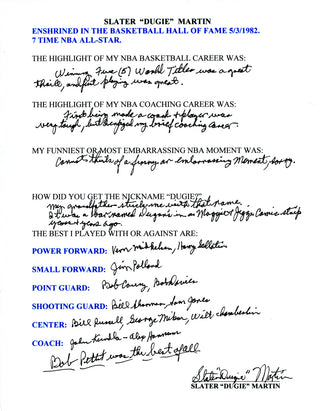 SLATER "DUGIE" MARTIN
ENSHRINED IN THE BASKETBALL HALL OF FAME 5/3/1982.
7 TIME NBA ALL-STAR.
THE HIGHLIGHT OF MY NBA BASKETBALL CAREER WAS:
Winning Five (5) World Titles was a great
thrill, and just playing was great.
THE HIGHLIGHT OF MY NBA COACHING CAREER WAS:
First being made a coach & player was
very tough, but enjoyed my brief coaching career.
MY FUNNIEST OR MOST EMBARRASSING NBA MOMENT WAS:
Cannot think of a funny or embarrassing Moment, sorry.
HOW DID YOU GET THE NICKNAME "DUGIE?"
My grandfather stuck me with that name.
It was a bar named Dugan's in a Maggie & Jiggs Comic strip
years & years ago.
THE BEST I PLAYED WITH OR AGAINST ARE:
POWER FORWARD: Vern Mikkelsen, Harry Gallatin
SMALL FORWARD: Jim Pollard
POINT GUARD: Bob Cousy, Bob Davies
SHOOTING GUARD: Bill Sharman, Sam Jones
CENTER: Bill Russell, George Mikan, Wilt Chamberlin
COACH: John Kundla - Alex Hannum
Bob Pettit was the best of all
Slater "Dugie" Martin
SLATER "DUGIE" MARTIN